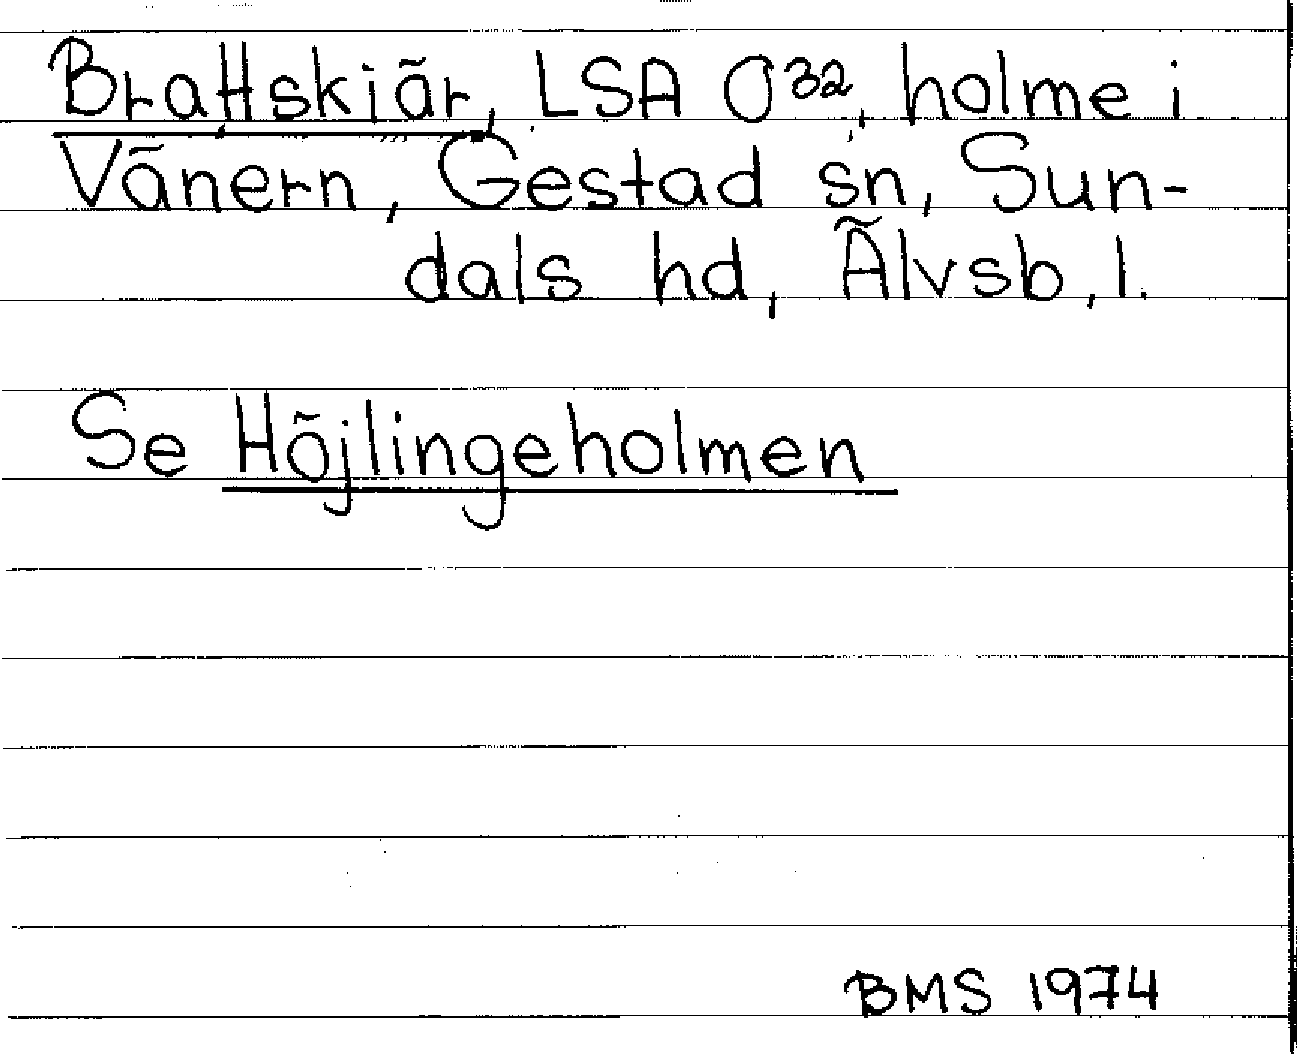 Brattskiär, LSA O32, holme i
Vänern, Gestad sn, Sun-
dals hd, Älvsb, l.
Se Höjlingeholmen
BMS 1974